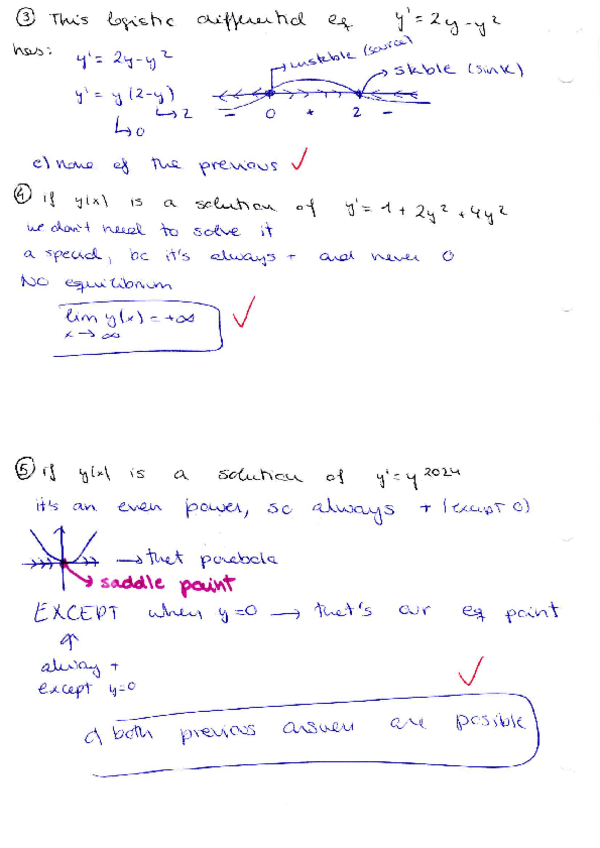 ③ This logistic differential eq y' = 2y - y²
has: y' = 2y - y²
→ unstable (source)
→ stable (sink)
y' = y (2-y)
↳ 2
↳ 0
- 0 + 2 -
c) none of the previous ✓
④ if y(x) is a solution of y' = 1 + 2y² + 4y²
we don't need to solve it
a special, bc it's always + and never 0
NO equilibrium
lim y(x) = +∞ ✓
x → ∞
⑤ if y(x) is a solution of y' = y²⁰²⁴
it's an even power, so always + (except 0)
→ that parabola
→ saddle point
EXCEPT when y=0 → that's our eq point
↑
alway +
except y=0
✓
c) both previous answer are possible